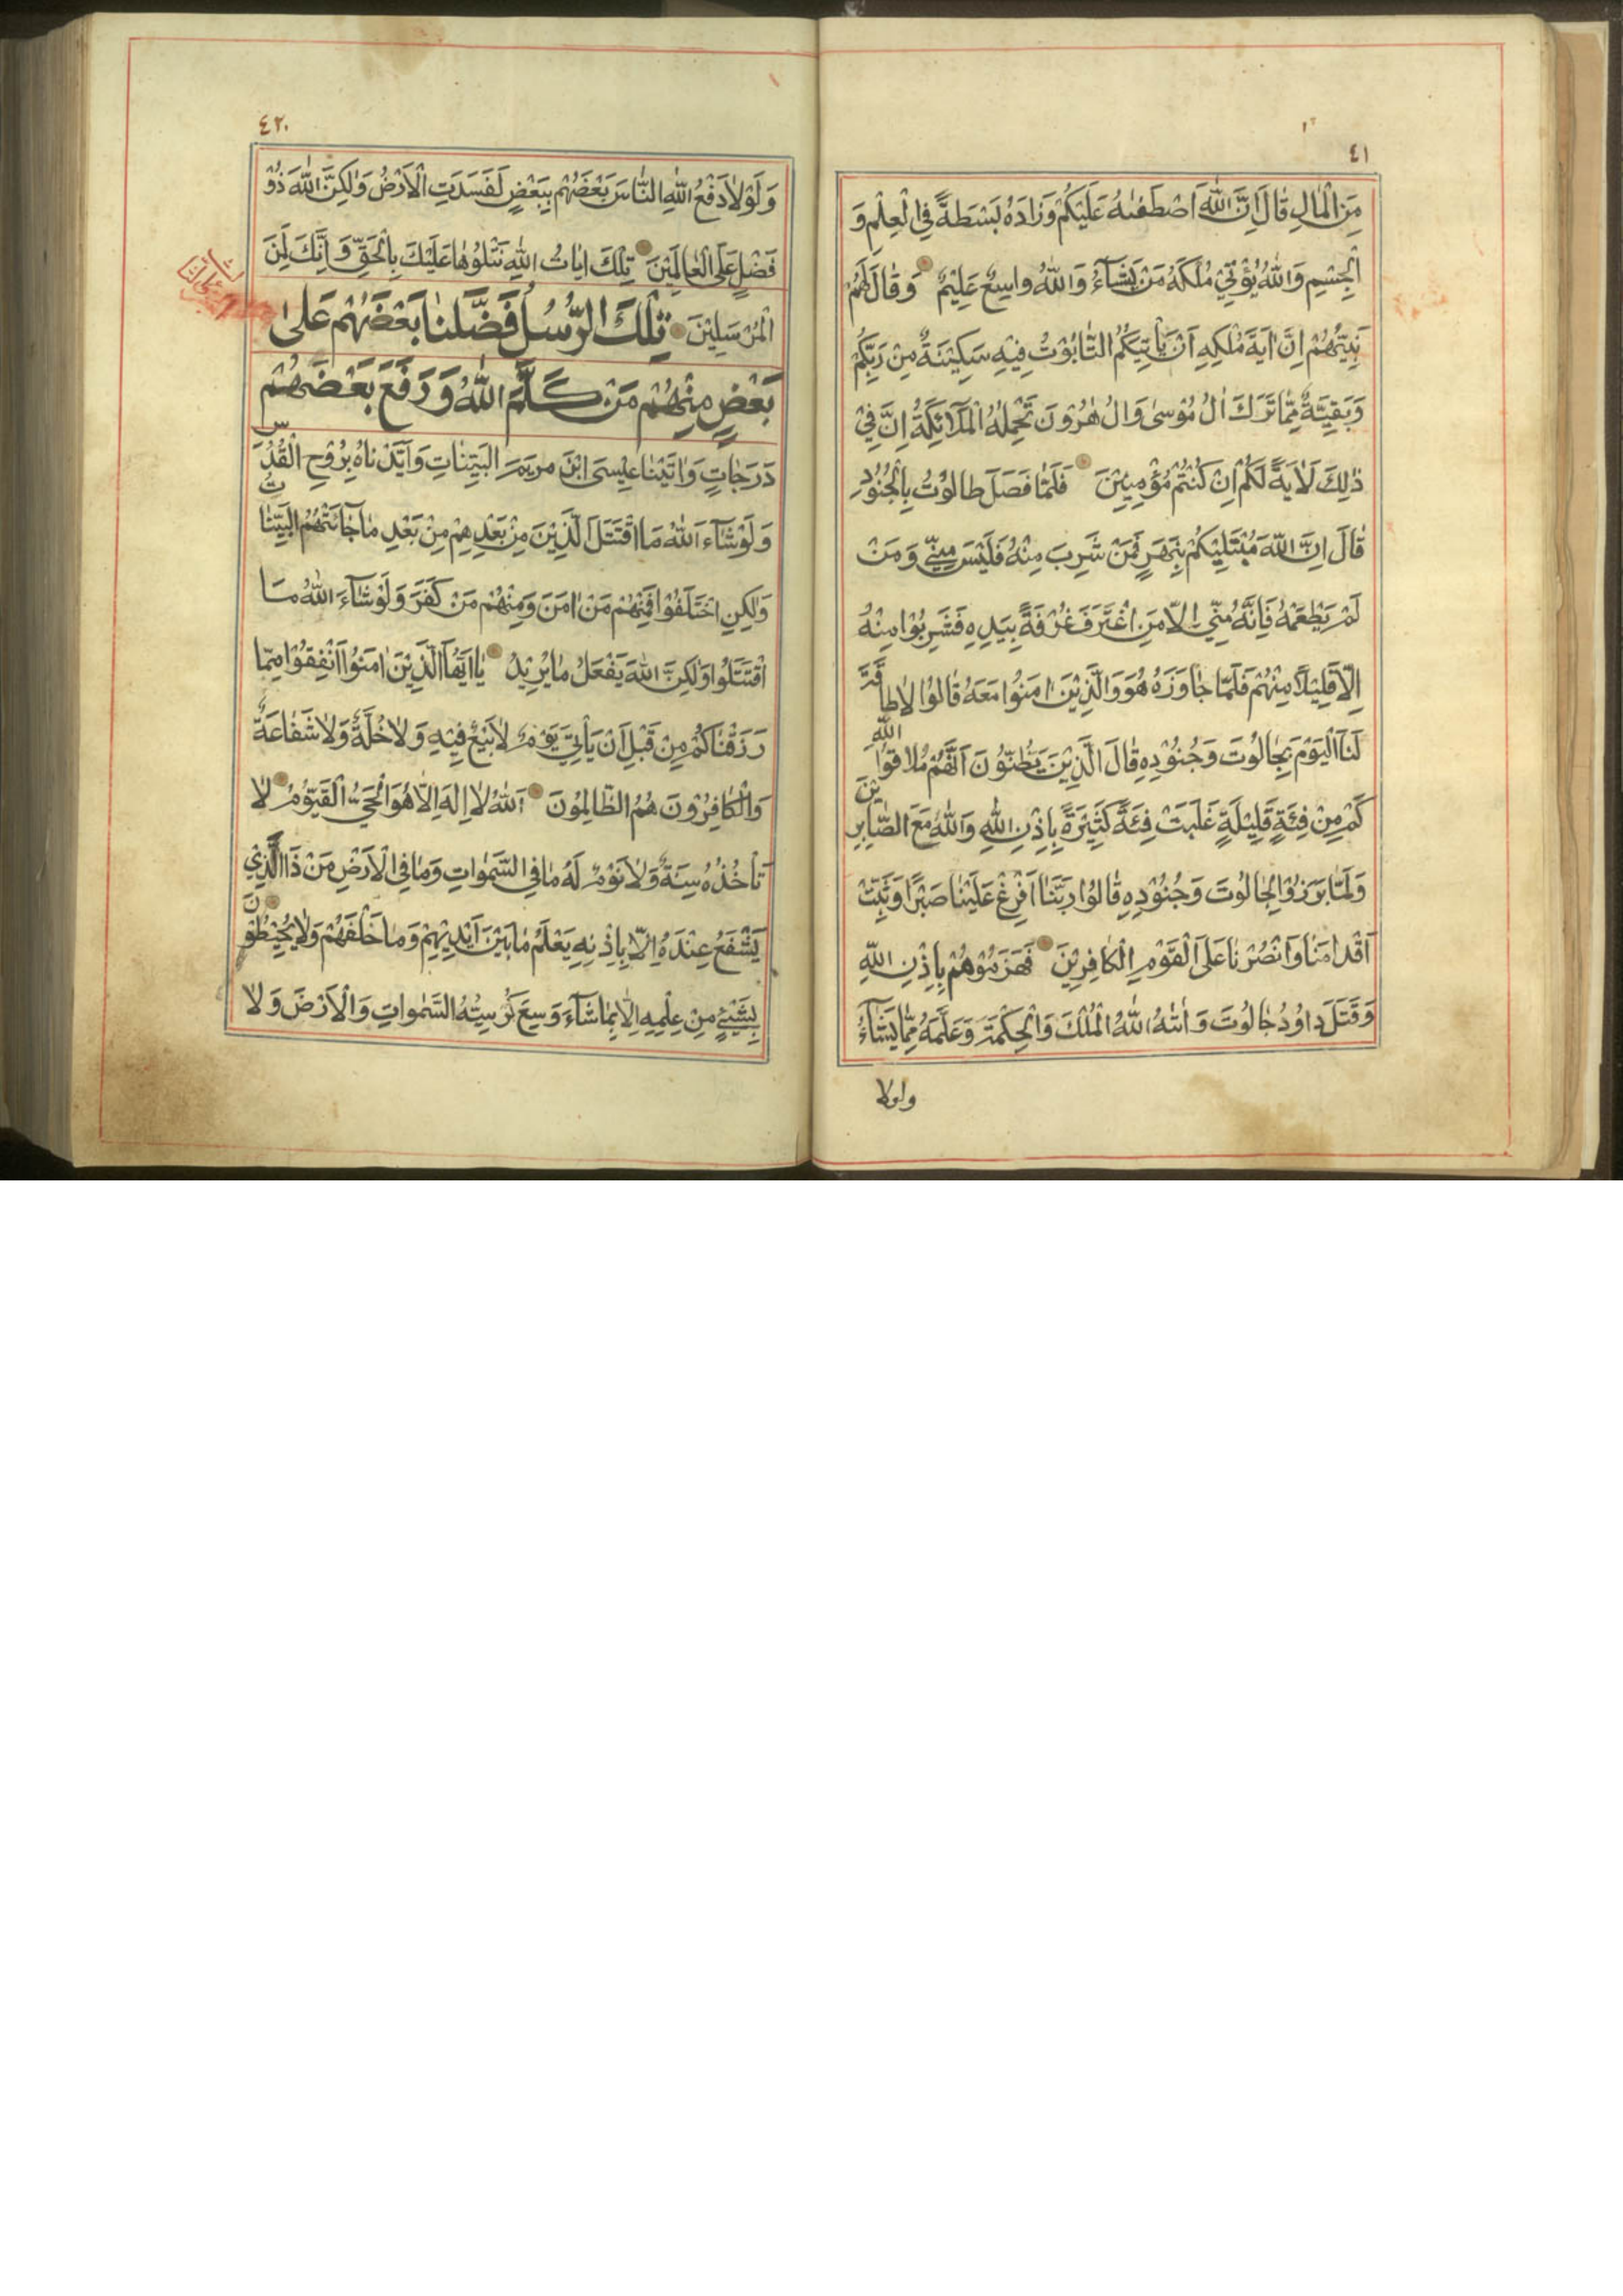 ٤١
مِنَ الْمٰالِ قٰالَ اِنَّ اللّٰهَ اصْطَفٰىهُ عَلَيْكُمْ وَزٰادَهُ بَسْطَةً فِي الْعِلْمِ وَ
الْجِسْمِ وَاللّٰهُ يُؤْتِيْ مُلْكَهُ مَنْ يَشٰآءُ وَاللّٰهُ وٰاسِعٌ عَلِيْمٌ وَقٰالَ لَهُمْ
نَبِيُّهُمْ اِنَّ اٰيَةَ مُلْكِهِ اَنْ يَأْتِيَكُمُ التّٰابُوْتُ فِيْهِ سَكِيْنَةٌ مِنْ رَبِّكُمْ
وَبَقِيَّةٌ مِمّٰا تَرَكَ اٰلُ مُوْسىٰ وَاٰلُ هٰرُوْنَ تَحْمِلُهُ الْمَلٰآئِكَةُ اِنَّ فِيْ
ذٰلِكَ لَاٰيَةً لَكُمْ اِنْ كُنْتُمْ مُؤْمِنِيْنَ فَلَمّٰا فَصَلَ طٰالُوْتُ بِالْجُنُوْدِ
قٰالَ اِنَّ اللّٰهَ مُبْتَلِيْكُمْ بِنَهَرٍ فَمَنْ شَرِبَ مِنْهُ فَلَيْسَ مِنِّيْ وَمَنْ
لَمْ يَطْعَمْهُ فَاِنَّهُ مِنِّيْ اِلّٰا مَنِ اغْتَرَفَ غُرْفَةً بِيَدِهِ فَشَرِبُوْا مِنْهُ
اِلّٰا قَلِيْلًا مِنْهُمْ فَلَمّٰا جٰاوَزَهُ هُوَ وَالَّذِيْنَ اٰمَنُوْا مَعَهُ قٰالُوْا لٰا طٰاقَةَ
لَنٰا الْيَوْمَ بِجٰالُوْتَ وَجُنُوْدِهِ قٰالَ الَّذِيْنَ يَظُنُّوْنَ اَنَّهُمْ مُلٰاقُوا اللّٰهِ
كَمْ مِنْ فِئَةٍ قَلِيْلَةٍ غَلَبَتْ فِئَةً كَثِيْرَةً بِاِذْنِ اللّٰهِ وَاللّٰهُ مَعَ الصّٰابِرِيْنَ
وَلَمّٰا بَرَزُوْا لِجٰالُوْتَ وَجُنُوْدِهِ قٰالُوْا رَبَّنٰا اَفْرِغْ عَلَيْنٰا صَبْرًا وَثَبِّتْ
اَقْدٰامَنٰا وَانْصُرْنٰا عَلَى الْقَوْمِ الْكٰافِرِيْنَ فَهَزَمُوْهُمْ بِاِذْنِ اللّٰهِ
وَقَتَلَ دٰاوُدُ جٰالُوْتَ وَاٰتٰىهُ اللّٰهُ الْمُلْكَ وَالْحِكْمَةَ وَعَلَّمَهُ مِمّٰا يَشٰآءُ
ولولا
٤٢٠
وَلَوْلٰا دَفْعُ اللّٰهِ النّٰاسَ بَعْضَهُمْ بِبَعْضٍ لَفَسَدَتِ الْاَرْضُ وَلٰكِنَّ اللّٰهَ ذُوْ
فَضْلٍ عَلَى الْعٰالَمِيْنَ تِلْكَ اٰيٰاتُ اللّٰهِ نَتْلُوْهٰا عَلَيْكَ بِالْحَقِّ وَاِنَّكَ لَمِنَ
الْمُرْسَلِيْنَ تِلْكَ الرُّسُلُ فَضَّلْنٰا بَعْضَهُمْ عَلىٰ
بَعْضٍ مِنْهُمْ مَنْ كَلَّمَ اللّٰهُ وَرَفَعَ بَعْضَهُمْ
دَرَجٰاتٍ وَاٰتَيْنٰا عِيْسَى ابْنَ مَرْيَمَ الْبَيِّنٰاتِ وَاَيَّدْنٰاهُ بِرُوْحِ الْقُدُسِ
وَلَوْ شٰآءَ اللّٰهُ مَا اقْتَتَلَ الَّذِيْنَ مِنْ بَعْدِهِمْ مِنْ بَعْدِ مٰا جٰائَتْهُمُ الْبَيِّنٰاتُ
وَلٰكِنِ اخْتَلَفُوْا فَمِنْهُمْ مَنْ اٰمَنَ وَمِنْهُمْ مَنْ كَفَرَ وَلَوْ شٰآءَ اللّٰهُ مَا
اقْتَتَلُوْا وَلٰكِنَّ اللّٰهَ يَفْعَلُ مٰا يُرِيْدُ يٰا اَيُّهَا الَّذِيْنَ اٰمَنُوْا اَنْفِقُوْا مِمّٰا
رَزَقْنٰاكُمْ مِنْ قَبْلِ اَنْ يَأْتِيَ يَوْمٌ لٰا بَيْعٌ فِيْهِ وَلٰا خُلَّةٌ وَلٰا شَفٰاعَةٌ
وَالْكٰافِرُوْنَ هُمُ الظّٰالِمُوْنَ اَللّٰهُ لٰا اِلٰهَ اِلّٰا هُوَ الْحَيُّ الْقَيُّوْمُ لٰا
تَأْخُذُهُ سِنَةٌ وَلٰا نَوْمٌ لَهُ مٰا فِي السَّمٰوٰاتِ وَمٰا فِي الْاَرْضِ مَنْ ذَا الَّذِيْ
يَشْفَعُ عِنْدَهُ اِلّٰا بِاِذْنِهِ يَعْلَمُ مٰا بَيْنَ اَيْدِيْهِمْ وَمٰا خَلْفَهُمْ وَلٰا يُحِيْطُوْنَ
بِشَيْئٍ مِنْ عِلْمِهِ اِلّٰا بِمٰا شٰآءَ وَسِعَ كُرْسِيُّهُ السَّمٰوٰاتِ وَالْاَرْضَ وَلٰا